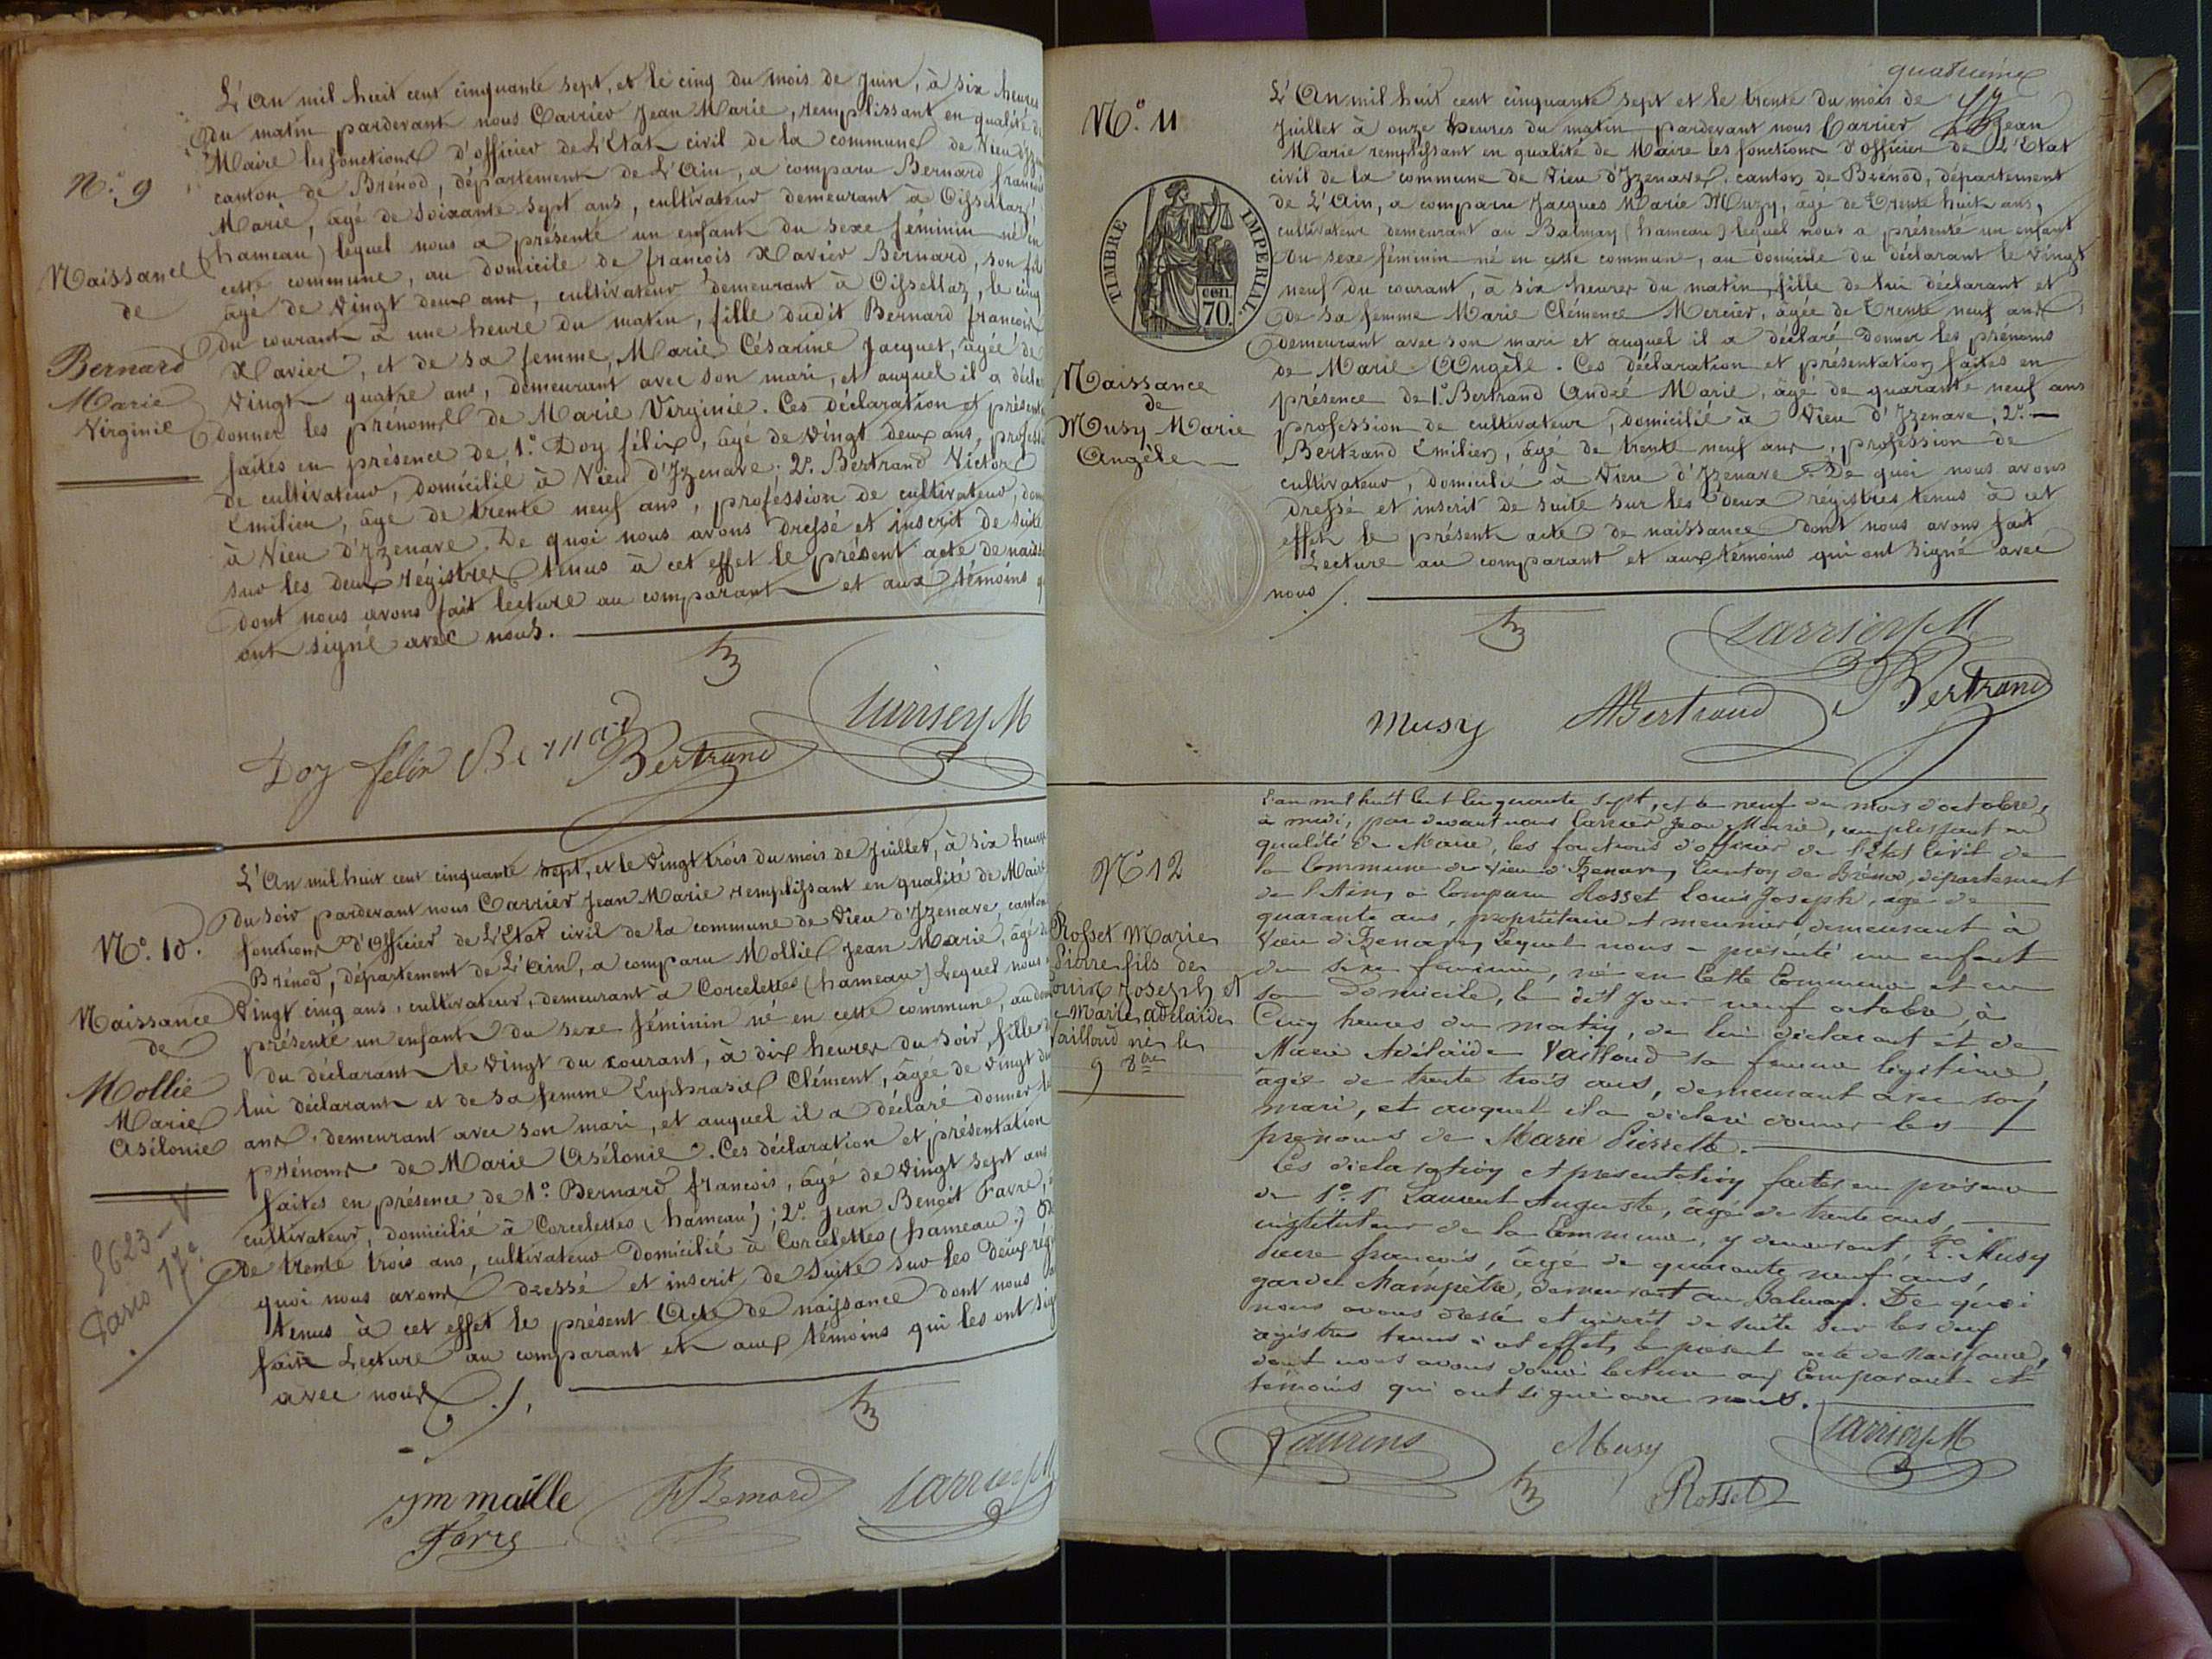 L'An mil huit cent cinquante sept, et le cinq du mois de Juin, à six heures
du matin pardevant nous Carrier Jean Marie, remplissant en qualité de
Maire les fonctions d'officier de L'Etat civil de la commune de Vieu d'Izen
canton de Brénod, département de L'Ain, a comparu Bernard françois
N.º 9
Marie, âgé de soixante sept ans, cultivateur demeurant a Oisselaz,
(hameau) lequel nous a présenté un enfant du sexe féminin né en
cette commune, au domicile de françois Xavier Bernard, son fils
âgé de vingt deux ans, cultivateur demeurant à Oissellaz, le cinq
du courant à une heure du matin, fille dudit Bernard françois
Xavier, et de sa femme, Marie Césarine Jacquet, âgée de
vingt quatre ans, demeurant avec son mari, et auquel il a décla
donner les prénoms de Marie Virginie. Ces déclaration et présent
faites en présence de 1.º Doy félix, âgé de vingt deux ans, profess
de cultivateur, domicilié à Vieu d'Izenave. 2.º Bertrand Victor
Emilien, âgé de trente neuf ans, proféssion de cultivateur, dom
à Vieu d'Izenave. De quoi nous avons dressé et inscrit de suite
sur les deux régistres tenus à cet effet le présent acte de naiss
dont nous avons fait lecture au comparant et aux témoins q
ont signé avec nous.
Naissance
de
Bernard
Marie
Virginie
Doy félix Bernard Bertrand Carrier JM
L'An mil huit cent cinquante sept, et le vingt trois du mois de Juillet, à six heures
du soir pardevant nous Carrier Jean Marie remplissant en qualité de Maire
fonctions d'Officier de L'Etat civil de la commune de Vieu d'Izenave, canton
Brénod, département de L'Ain, a comparu Mollie Jean Marie, âgé de
vingt cinq ans, cultivateur, demeurant a Corcelettes (hameau) Lequel nous
présenté un enfant du sexe féminin né en cette commune, au dom
du déclarant le vingt du courant, à dix heures du soir, fille d
lui déclarant et de sa femme Euphrasie Clément, âgée de vingt d
ans, demeurant avec son mari, et auquel il a déclaré donner le
prénoms de Marie Asélonie. Ces déclaration et présentation
faites en présence de 1º Bernard françois, âgé de vingt sept ans
cultivateur, domicilié à Corcelettes (hameau); 2º Jean Benoît Favre,
de trente trois ans, cultivateur domicilié à Corcelettes (hameau.) De
quoi nous avons dressé et inscrit de suite sur les deux rég
tenus à cet effet le présent Acte de naissance dont nous
fait Lecture au comparant et aux témoins qui les ont sig
avec nous ./.
Nº. 10.
Naissance
de
Mollie
Marie
Asélonie
5623
17e
jm maille F Bernard Carrier JM
favre
quatrième
Nº. 11
L'An mil huit cent cinquante sept et le trente du mois de
Juillet à onze heures du matin pardevant nous Carrier Jean
Marie remplissant en qualité de Maire les fonctions d'officier de L'Etat
civil de la commune de Vieu d'Izenave, canton de Brénod, département
de L'Ain, a comparu Jacques Marie Muzy, âgé de trente huit ans,
cultivateur demeurant au Balmay (hameau) lequel nous a présenté un enfant
du sexe féminin né en cette commune, au domicile du déclarant le vingt
neuf du courant, à six heures du matin, fille de lui déclarant et
de sa femme Marie Clémence Mercier, âgée de trente neuf ans,
demeurant avec son mari et auquel il a déclaré donner les prénoms
de Marie Angèle. Ces déclaration et présentation faites en
présence de 1.º Bertrand André Marie, âgé de quarante neuf ans
profession de cultivateur, domicilié à Vieu d'Izenave; 2.º
Bertrand Emilien, âgé de trente neuf ans, profession de
cultivateur, domicilié à Vieu d'Izenave. De quoi nous avons
dressé et inscrit de suite sur les deux régistres tenus à cet
effet le présent acte de naissance dont nous avons fait
Lecture au comparant et aux témoins qui ont signé avec
nous ./.
TIMBRE IMPERIAL
CEN.
70.
Naissance
de
Musy Marie
Angèle
Carrier JM
Musy ABertrand Bertrand
L'an mil huit cent cinquante sept, et le neuf du mois d'octobre,
à midi, par devant nous Carrier Jean Marie, remplissant en
qualité de Maire, les fonctions d'officier de l'Etat Civil de
la Commune de Vieu d'Izenave, Canton de Brénod, département
de l'Ain, a Comparu Rosset Louis Joseph, âgé de
quarante ans, propriétaire et meunier demeurant à
Vieu d'Izenave, Lequel nous a présenté un enfant
du sexe féminin, né en Cette Commune et en
son Domicile, le dit jour neuf octobre, à
Cinq heures du matin, de lui déclarant et de
Marie Adélaïde Vaillaud sa femme légitime,
âgée de trente trois ans, demeurant avec son
mari, et auquel il a déclaré donner les
prénoms de Marie Pierrette.
Ces déclaration et présentation faites en présence
de 1º. Laurent Auguste, âgé de trente ans,
instituteur de la Commune, y demeurant, 2º. Musy
françois, âgé de quarante neuf ans,
garde Champêtre, demeurant au Balmay. De quoi
nous avons dressé et inscrit de suite sur les deux
régistres tenus à cet effet, le présent acte de Naissance,
dont nous avons donné lecture aux Comparant et
témoins qui ont signé avec nous.
Nº 12
Rosset Marie
Pierre fils de
Louis Joseph et
de Marie adelaïde
Vaillaud né le
9 8bre
Laurens Musy Carrier JM
Rosset